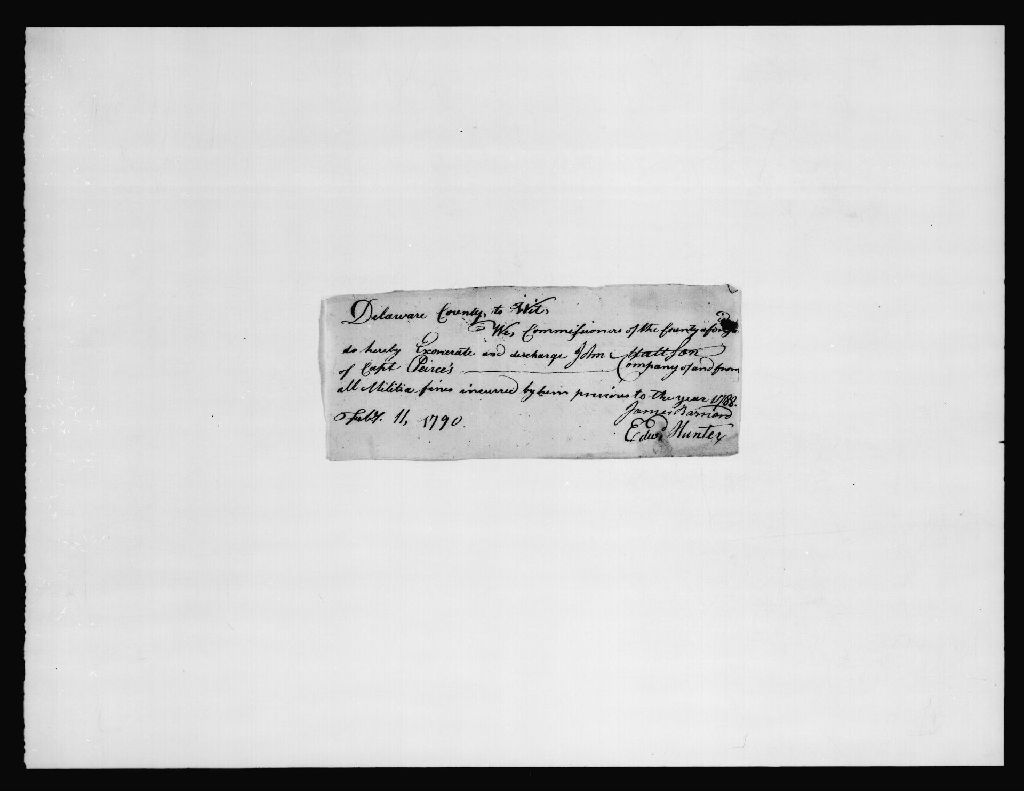 Delaware County, to Wit,
We, Commissioners of the County afors.d
do hereby Exonerate and discharge John Mattson
of Capt Peirce's Company of and from
all Militia fines incurred by him previous to the year 1788.
James Barnard
Feb.y 11, 1790.
Edw.d Hunter